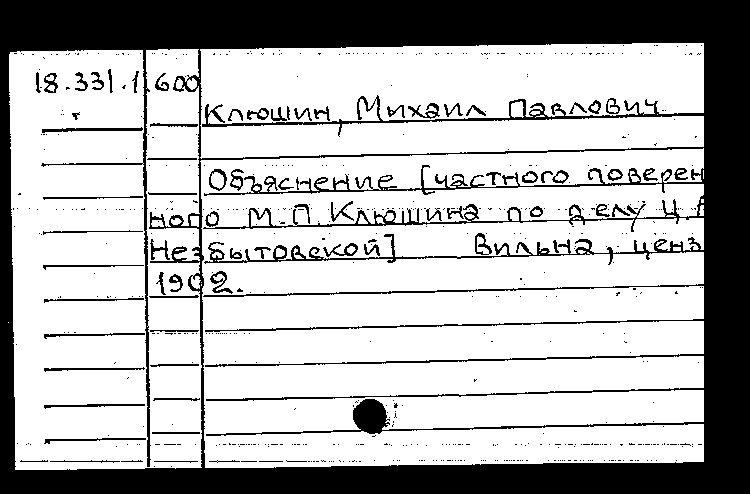 18.331.1.600
Клюшин, Михаил Павлович
Объяснение [частного поверен
ного М.П. Клюшина по делу Ц.
Незбытовской] Вильна, ценз
1902.